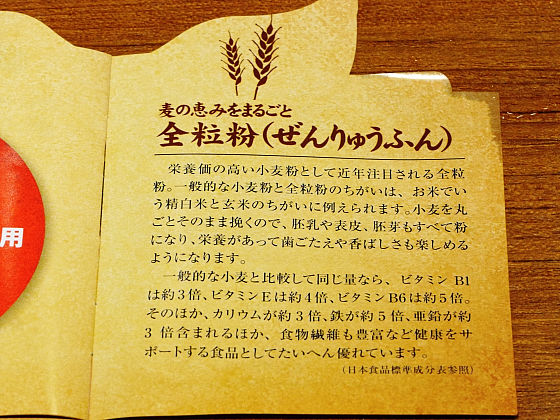 麦の恵みをまるごと
全粒粉(ぜんりゅうふん)
栄養価の高い小麦粉として近年注目される全粒
粉。一般的な小麦粉と全粒粉のちがいは、お米でい
う精白米と玄米のちがいに例えられます。小麦を丸
ごとそのまま挽くので、胚乳や表皮、胚芽もすべて粉
になり、栄養があって歯ごたえや香ばしさも楽しめる
ようになります。
一般的な小麦と比較して同じ量なら、ビタミン B1
は約3倍、ビタミンEは約4倍、ビタミンB6は約5倍。
そのほか、カリウムが約3倍、鉄が約5倍、亜鉛が約
3倍含まれるほか、食物繊維も豊富など健康をサ
ポートする食品としてたいへん優れています。
(日本食品標準成分表参照)
用